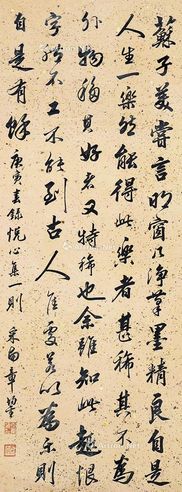 蘇子美嘗言明窗几淨筆墨精良自是
人生一樂然能得此樂者甚稀其不為
外物移其好者又特稀也余雖知此趣恨
字體不工不能到古人佳處若以為樂則
自是有餘
庚寅錄悅心集一則
采南章鋆